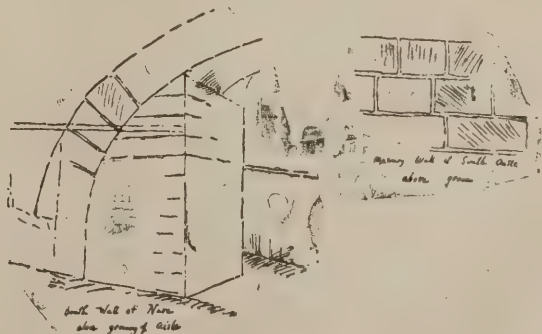 masonry Wall of South Aisle
above groin
South Wall of Nave
above groin of Aisle